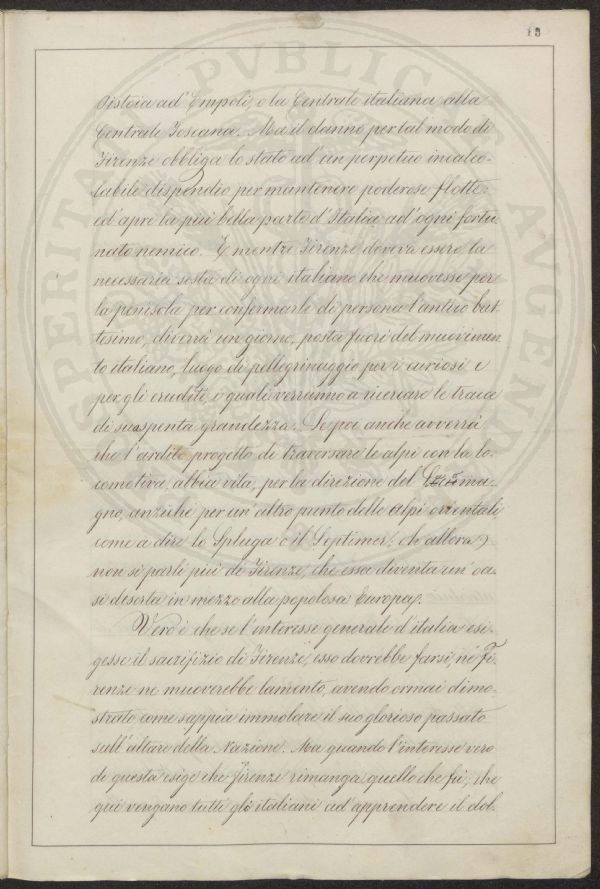 13
Pistoia ad' Empoli, o la Centrale italiana alla
Centrale Toscana. Ma il danno per tal modo di
Firenze obbliga lo stato ad un perpetuo incalco-
labile dispendio per mantenere poderose flotte;
ed apre la più bella parte d'Italia ad' ogni fortu
nato nemico. E mentre Firenze doveva essere la
necessaria sosta di ogni italiano che muovesse per
la penisola per confermarle di persona l'antico bat
tesimo, diverrà un giorno, posta fuori del muovimen
to italiano, luogo di pellegrinaggio per i curiosi e
per gli eruditi, i quali verranno a ricercare le tracce
di sua spenta grandezza. Se poi anche avverrà
che l'ardito progetto di traversare le alpi con la lo.
comotiva, abbia vita, per la direzione del Lucoma.
gno, anziché per un' altro punto delle alpi orientali,
come a dire lo Spluga o il Septimer! oh allora
non si parli più di Firenze, che essa diventa un' oa.
si deserta in mezzo alla popolosa Europa.
Vero è che se l'interesse generale d'italia esi.
gesse il sacrifizio di Firenze, esso dovrebbe farsi, né Fi.
renze ne muoverebbe lamento, avendo ormai dimo.
strato come sappia immolare il suo glorioso passato
sull' altare della Nazione. Ma quando l'interesse vero
di questa esige che Firenze rimanga quello che fù, che
qui vengano tutti gli italiani ad' apprendere il dol.
SPERITAN PVBLIC AVGENDÆ